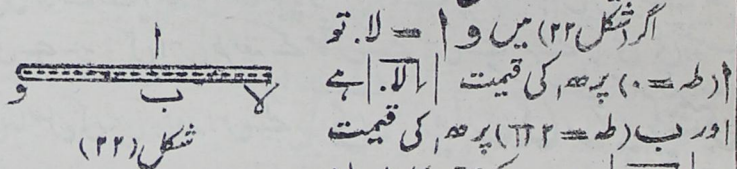 اگر (شکل ۲۲) میں و ا = لا. تو
ا (طہ = ۰) پر ھ، کی قیمت | √لا. | ہے
اور ب (طہ = ۲ π) پر ھ، کی قیمت
ا
و
ب
لا
شکل (۲۲)